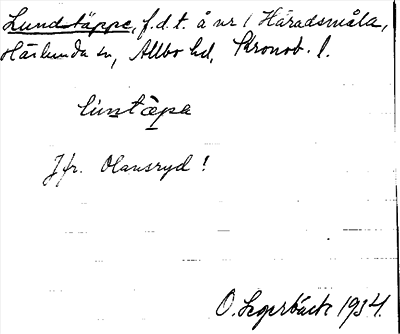 Lundtäppe, f.d.t. å nr 1 Häradsmåla,
Härlunda sn, Allbo hd, Kronob. l.
luntæpa
Jfr. Olansryd!
O. Lagerbäck 1934.